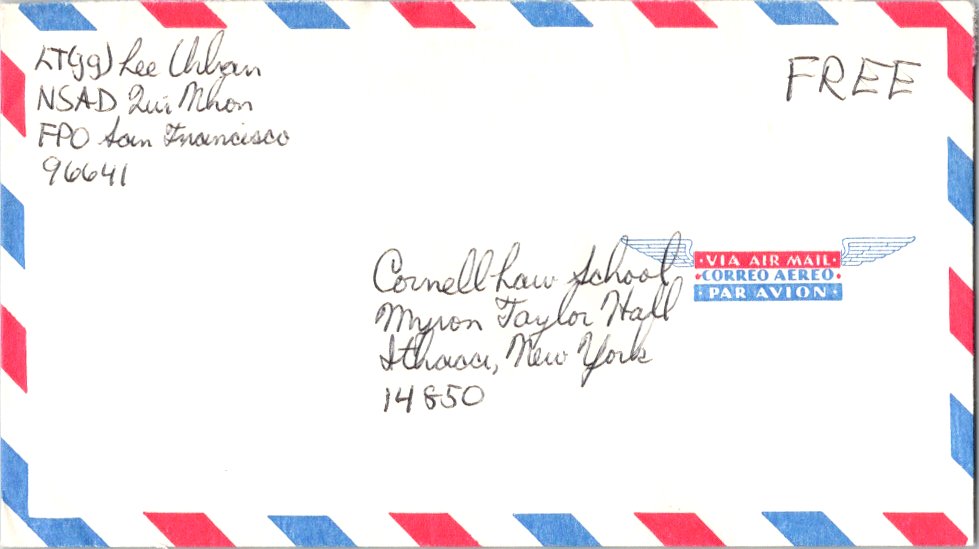 LT(jg) Lee Urban
NSAD Qui Nhon
FPO San Francisco
96641
FREE
Cornell Law School
Myron Taylor Hall
Ithaca, New York
14850
·VIA AIR MAIL·
·CORREO AEREO·
·PAR AVION·